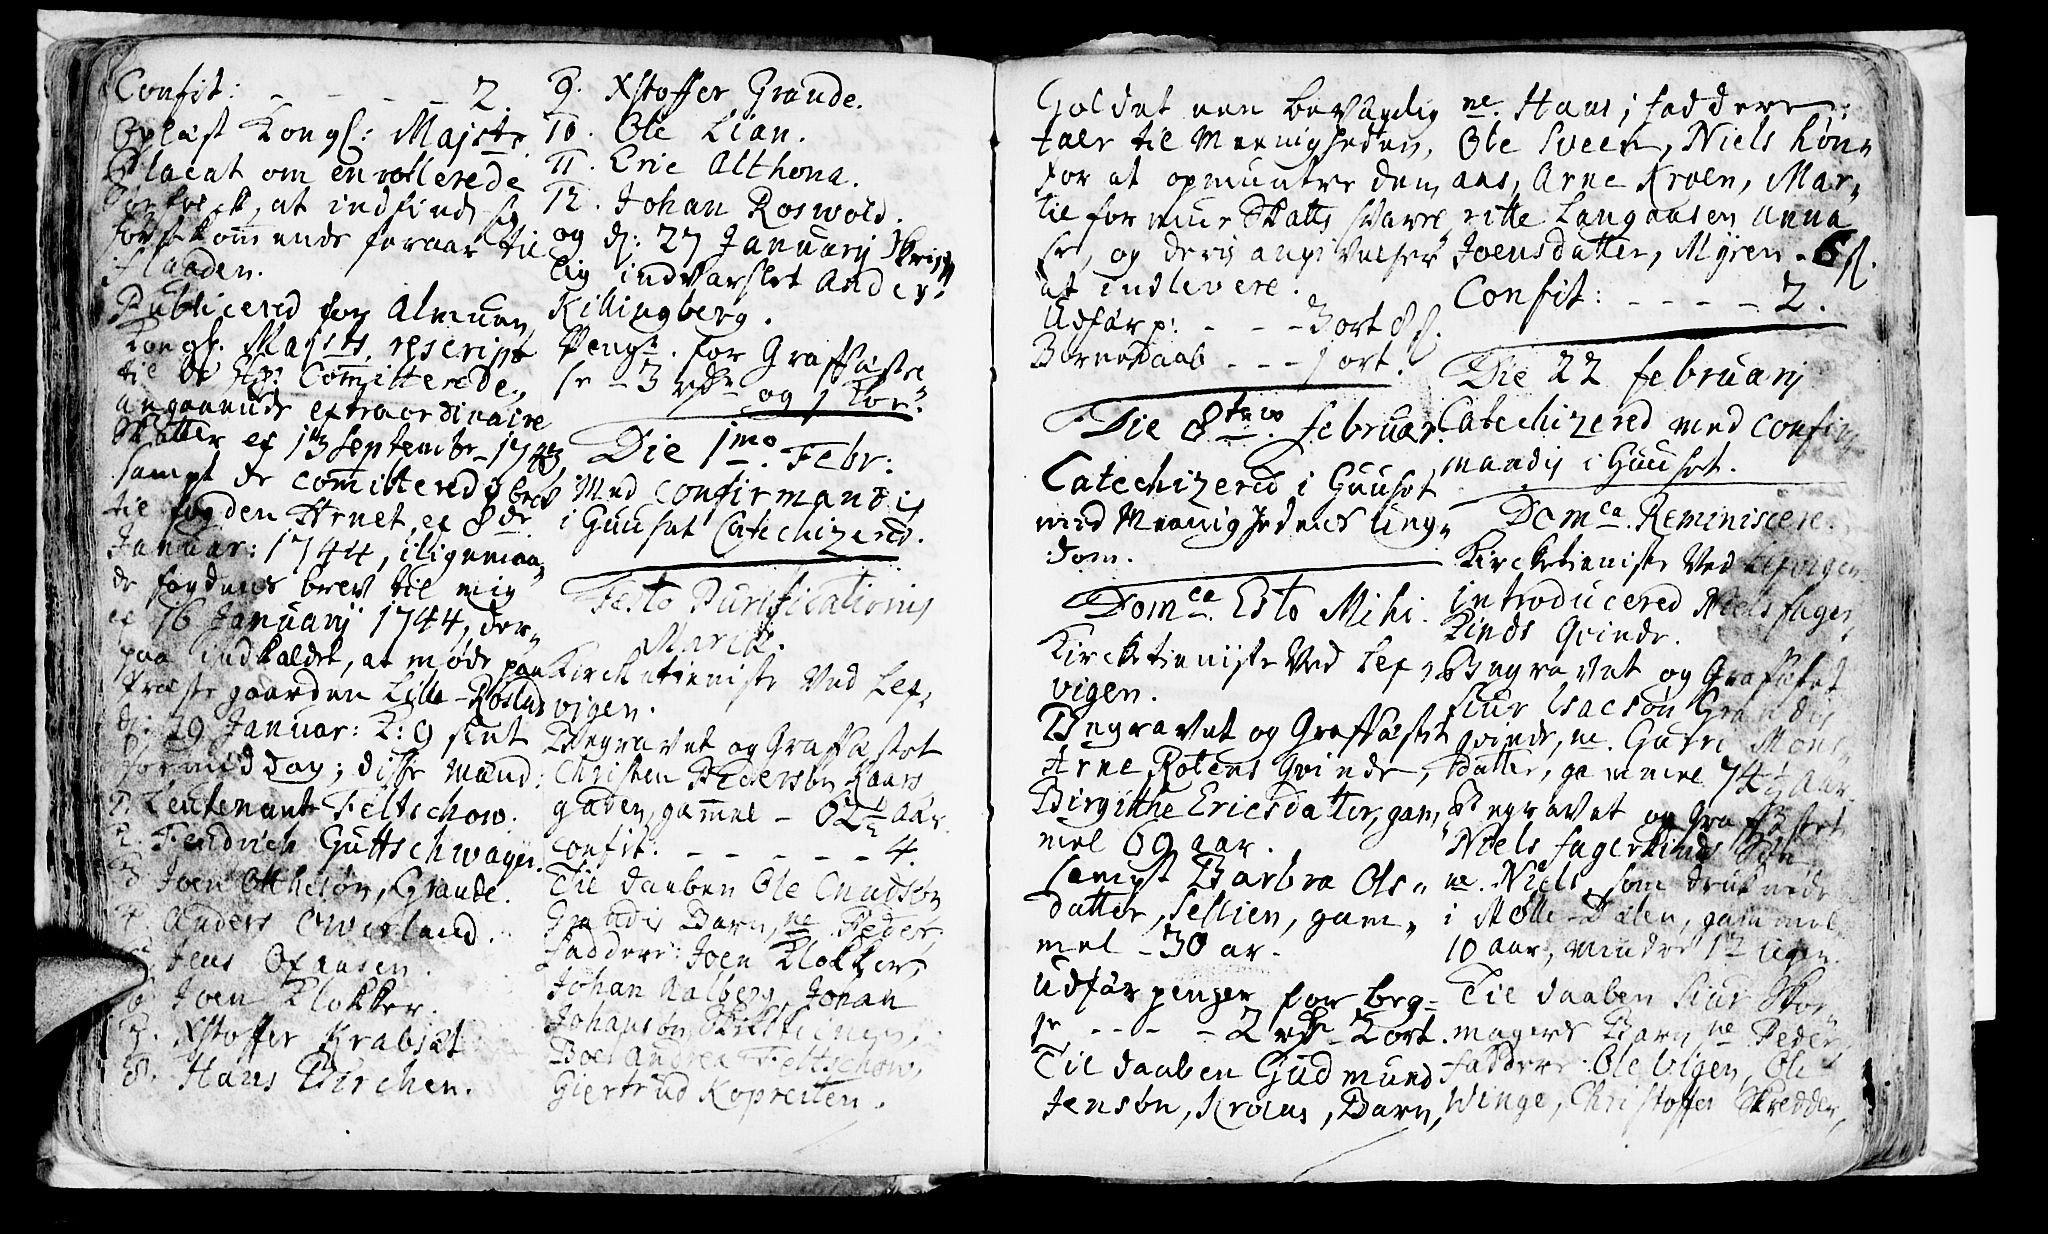 Confit: - - - - - 2.
Oplæst Kongl: Majsts
Placat om enrollerede
at indfinde sig
førstkommende foraar til
flaaden.
Publicered for Almuen
Kongl. Majsts rescript
til de Committerede,
angaaende extraordinaire
Skatter ex 13 Septembr. 1743,
sampt de committeredis brev
til fogden Hrnet, ex 8de
Januar: 1744, iligemaa-
de fogdens brev til mig
ex 16 Januarij 1744, der-
paa indkaldet, at møde paa
Præstegaarden Lille-Roslad
d: 29 Januar: Z: 9 slet
formiddag; disse mænd:
1. Leutenant Feltschow.
2. Fendrich Guttschwager.
3 Joen Otthesøn, Grande.
4. Anders Owerland.
5 Jens Oxaasen.
6. Joen Klokker.
7. Xstoffer Krabsæt
8. Hans Birchen.
9. Xstoffer Grande.
10. Ole Lian.
11. Eric Althona.
12. Johan Roswold.
og d: 27 January Skrift
lig indvarslet Anders
Killingberg.
Penge for Graffæste
se - 3 rdr og 1 kor
Die 1mo Febr:
Med confirmandis
i Guuset Catechizered.
Festo Purificationis
Mariæ.
Kircketieniste Ved Lex,
vigen.
Begravet og Graffæstet
Christen Pedersøn Kaars
gaden, gammel - 62½ aar.
confit. - - - - - - 4.
Til daaben Ole Cnudsøn
Grandis Barn, ne Peder,
faddere: Joen Klokker,
Johan Aalberg, Johan
Johansøn,
Boel Andrea Feltschow,
Giertrud Kopreiten.
Holdet een bevægelig
tale til Meenigheden,
for at opmuntre dem
til formue Skatts svarel
se, og deris angivelser
at indlevere.
Udfør p: - - - 3 ort 8 s.
Bornedaab - - - 1 ort.
Die 8tavo Februar.
Catechizered i Guuset
med Meenighedens ung-
dom.
Domca Esto Mihi.
Kircketieniste Ved Lex,
vigen.
Begravet og Graffæstet
Arne Rotens Qvinde,
Birgithe Ericsdatter, gam,
mel 69 aar.
sampt Barbra Ols-
datter, Sellien, gam,
mel - 30 ar.
Udfør penger for beg-
ge - - - - 2 rdr 2 ort.
Til daaben Gudmund
Jensøn, Kroens, Barn,
ne. Hans; faddere:
Ole Sveen, Niels Høn-
aas, Arne Kroen, Mar-
ritte Langaasen Anna
Joensdatter, Myren - 6 s.
Confit: - - - - 2.
Die 22 februarij
Catechizered med Confir
mandis i Guuset.
Domca. Reminiscere.
Kircketieniste Ved Lexvigen.
introducered Niels fager
kinds Qvinde.
Begravet og Graffæstet
Siur Isacsøn Grandis
Qvinde, ne. Guru Mons-
datter, gammel 74½ aar.
Begravet og Graffæstet
Niels fagerkinds Søn
ne. Niels, som druknede
i Mølle-Dalen, gammel
10 aar, mindre 12 ugen.
Til daaben Siur Skoe-
magers Barn ne Peder
faddere: Ole Vigen, Ole
Winge, Christoffer Skredder,